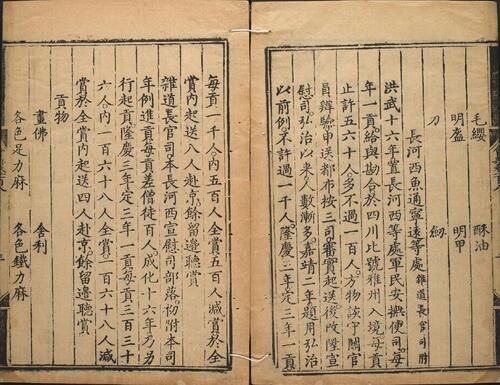 毛纓 酥油
明盔 明甲
刀 劒
長河西魚通寧遠等處 雜道長官司附
洪武十六年置長河西等處軍民安撫使司每
年一貢給與勘合於四川比號雅州入境每貢
止許五六十人多不過一百人方物該守關官
員辯驗申送都布按三司審實起送後改陞宣
慰司弘治以來人數漸多嘉靖二年題用弘治
以前例不許過一千人隆慶三年定三年一貢
每貢一千人內五百人全賞五百人減賞於全
賞內起送八人赴京餘留邊聽賞
雜道長官司本長河西宣慰司部落初附本司
年例進貢每貢差僧徒百人成化十六年乃另
行起貢隆慶三年定三年一貢每貢三百三十
六人內一百六十八人全賞一百六十八人減
賞於全賞內起送四人赴京餘留邊聽賞
貢物
畫佛 舍利
各色足力麻 各色鐵力麻